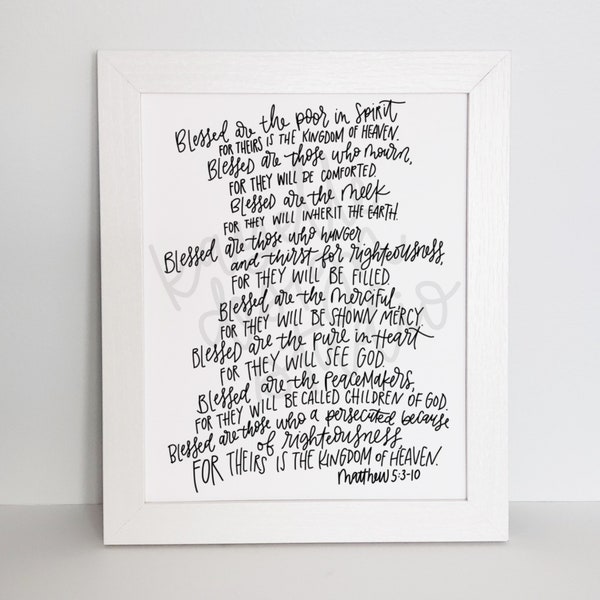 Blessed are the poor in Spirit
FOR THEIRS IS THE KINGDOM OF HEAVEN.
Blessed are those who mourn,
FOR THEY WILL BE COMFORTED.
Blessed are the meek
FOR THEY WILL INHERIT THE EARTH.
Blessed are those who hunger
and thirst for righteousness,
FOR THEY WILL BE FILLED.
Blessed are the merciful,
FOR THEY WILL BE SHOWN MERCY
Blessed are the pure in Heart
FOR THEY WILL SEE GOD.
Blessed are the PeaceMakers,
FOR THEY WILL BE CALLED CHILDREN OF GOD.
Blessed are those who a persecuted because
of righteousness
FOR THEIRS IS THE KINGDOM OF HEAVEN.
Matthew 5:3-10